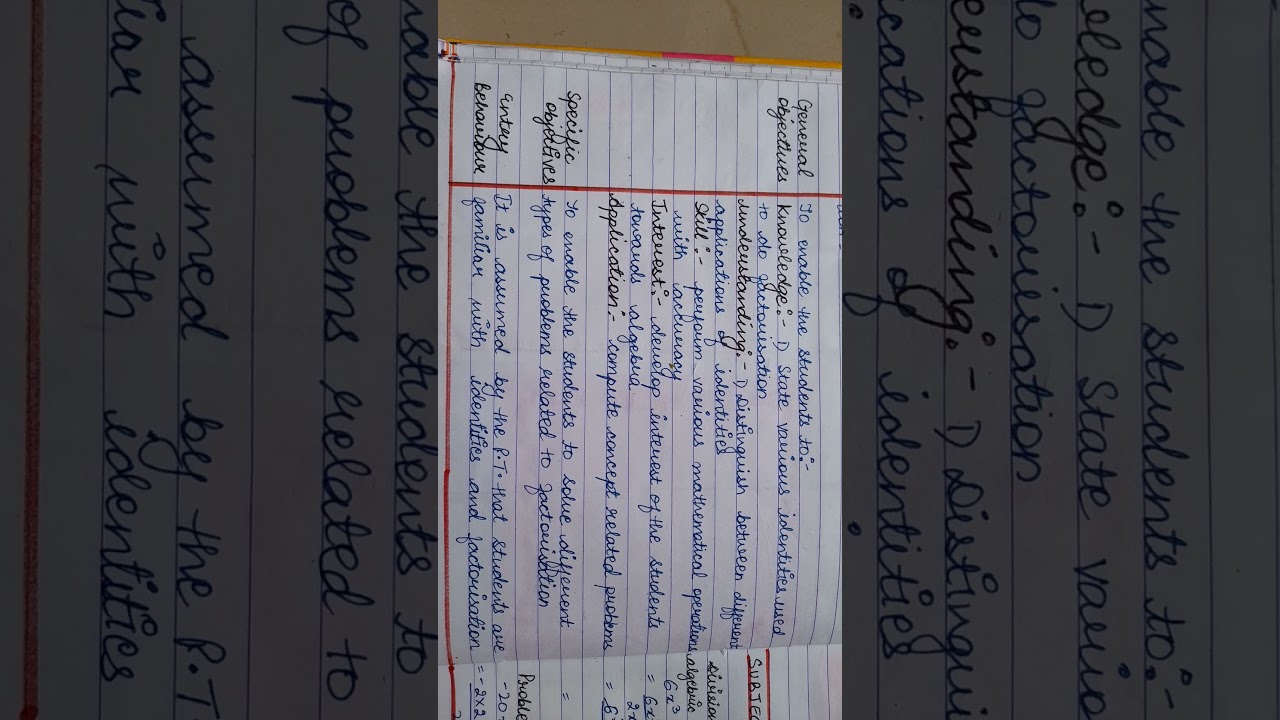 General
objectives
To enable the students to:-
Knowledge:- 1) State various identities used
to do factorisation
Understanding:- 1) Distinguish between different
applications of identities
Skill:- perform various mathematical operations
with accuracy
Interest:- develop interest of the students
towards algebra
Application:- compute concept related problems
Specific
objectives
To enable the students to solve different
types of problems related to factorisation
Entry
Behaviour
It is assumed by the P.T. that students are
familiar with identities and factorisation
SUBJEC
Division
algebraic
6x³
= 6x
2x
Proble
-20
= -2x2